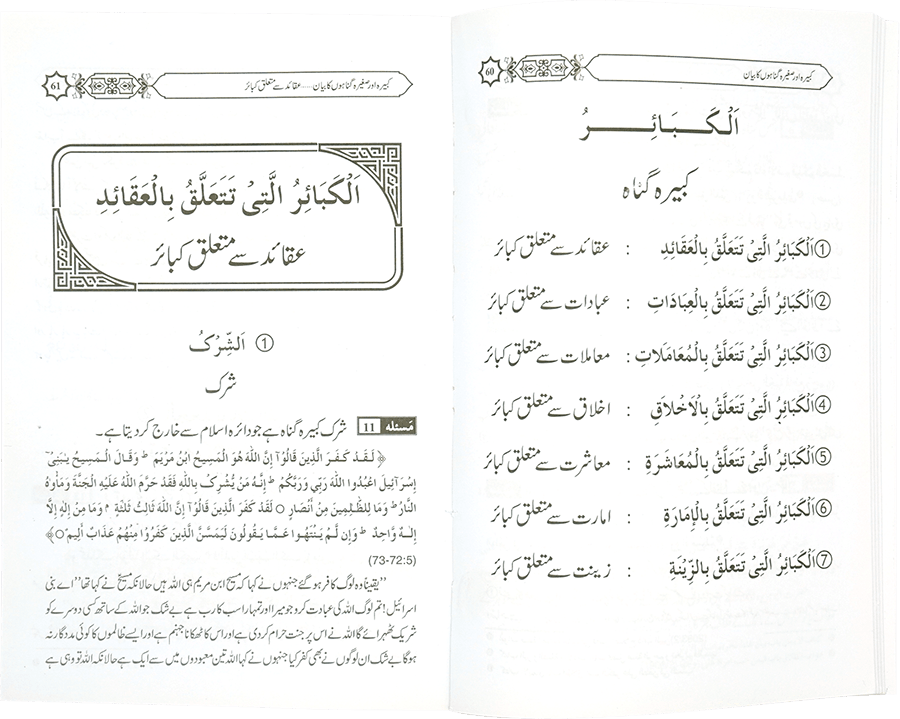 60
کبیرہ اور صغیرہ گناہوں کا بیان
اَلْكَبَائِرُ
کبیرہ گناہ
① اَلْكَبَائِرُ الَّتِىْ تَتَعَلَّقُ بِالْعَقَائِدِ : عقائد سے متعلق کبائر
② اَلْكَبَائِرُ الَّتِىْ تَتَعَلَّقُ بِالْعِبَادَاتِ : عبادات سے متعلق کبائر
③ اَلْكَبَائِرُ الَّتِىْ تَتَعَلَّقُ بِالْمُعَامَلَاتِ : معاملات سے متعلق کبائر
④ اَلْكَبَائِرُ الَّتِىْ تَتَعَلَّقُ بِالْاَخْلَاقِ : اخلاق سے متعلق کبائر
⑤ اَلْكَبَائِرُ الَّتِىْ تَتَعَلَّقُ بِالْمُعَاشَرَةِ : معاشرت سے متعلق کبائر
⑥ اَلْكَبَائِرُ الَّتِىْ تَتَعَلَّقُ بِالْإِمَارَةِ : امارت سے متعلق کبائر
⑦ اَلْكَبَائِرُ الَّتِىْ تَتَعَلَّقُ بِالزِّيْنَةِ : زینت سے متعلق کبائر
61
کبیرہ اور صغیرہ گناہوں کا بیان ..... عقائد سے متعلق کبائر
اَلْكَبَائِرُ الَّتِىْ تَتَعَلَّقُ بِالْعَقَائِدِ
عقائد سے متعلق کبائر
① اَلشِّرْكُ
شرک
مَسئله 11 شرک کبیرہ گناہ ہے جو دائرہ اسلام سے خارج کر دیتا ہے۔
﴿ لَقَدْ كَفَرَ الَّذِينَ قَالُوْآ إِنَّ اللّٰهَ هُوَ الْمَسِيحُ ابْنُ مَرْيَمَ ط وَقَالَ الْمَسِيحُ يٰبَنِىْٓ
إِسْرَآئِيلَ اعْبُدُوا اللّٰهَ رَبِّى وَرَبَّكُمْ ط إِنَّهُ مَنْ يُّشْرِكْ بِاللّٰهِ فَقَدْ حَرَّمَ اللّٰهُ عَلَيْهِ الْجَنَّةَ وَمَأْوٰهُ
النَّارُ ط وَمَا لِلظّٰلِمِينَ مِنْ أَنْصَارٍ ○ لَقَدْ كَفَرَ الَّذِينَ قَالُوْآ إِنَّ اللّٰهَ ثَالِثُ ثَلٰثَةٍ م وَمَا مِنْ إِلٰهٍ إِلَّآ
إِلٰهٌ وَّاحِدٌ ط وَإِن لَّمْ يَنْتَهُوا عَمَّا يَقُولُونَ لَيَمَسَّنَّ الَّذِينَ كَفَرُوْا مِنْهُمْ عَذَابٌ أَلِيمٌ ○﴾
(73-72:5)
’’یقیناً وہ لوگ کافر ہو گئے جنہوں نے کہا کہ مسیح ابن مریم ہی اللہ ہیں حالانکہ مسیح نے کہا تھا ’’اے بنی
اسرائیل! تم لوگ اللہ کی عبادت کرو جو میرا اور تمہارا سب کا رب ہے بے شک جو اللہ کے ساتھ کسی دوسرے کو
شریک ٹھہرائے گا اللہ نے اس پر جنت حرام کر دی ہے اور اس کا ٹھکانا جہنم ہے اور ایسے ظالموں کا کوئی مددگار نہ
ہوگا بے شک ان لوگوں نے بھی کفر کیا جنہوں نے کہا اللہ تین معبودوں میں سے ایک ہے حالانکہ اللہ تو وہی ہے